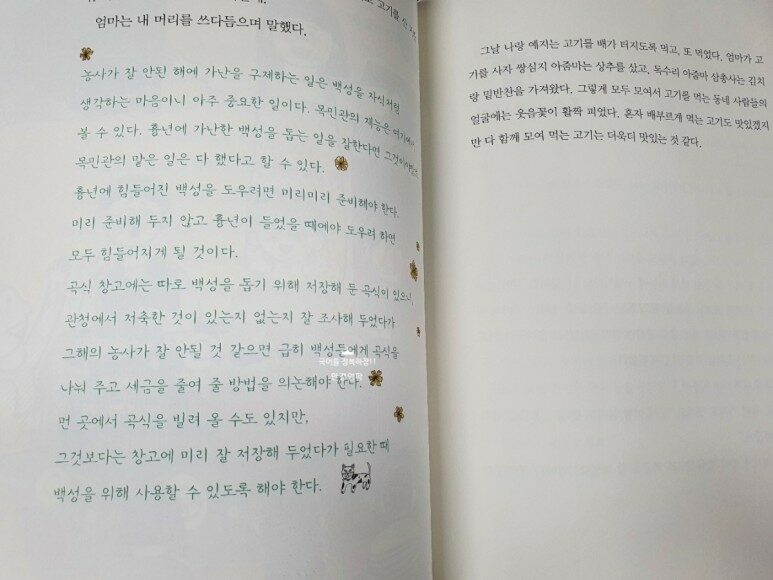 고기를
엄마는 내 머리를 쓰다듬으며 말했다.
농사가 잘 안된 해에 가난을 구제하는 일은 백성을 자식처럼
생각하는 마음이니 아주 중요한 일이다. 목민관의 재능은 여기에서
볼 수 있다. 흉년에 가난한 백성을 돕는 일을 잘한다면 그것이야말로
목민관의 맡은 일은 다 했다고 할 수 있다.
흉년에 힘들어진 백성을 도우려면 미리미리 준비해야 한다.
미리 준비해 두지 않고 흉년이 들었을 때에야 도우려 하면
모두 힘들어지게 될 것이다.
곡식 창고에는 따로 백성을 돕기 위해 저장해 둔 곡식이 있으니,
관청에서 저축한 것이 있는지 없는지 잘 조사해 두었다가
그해의 농사가 잘 안될 것 같으면 급히 백성들에게 곡식을
나눠 주고 세금을 줄여 줄 방법을 의논해야 한다.
먼 곳에서 곡식을 빌려 올 수도 있지만,
그것보다는 창고에 미리 잘 저장해 두었다가 필요한 때
백성을 위해 사용할 수 있도록 해야 한다.
그날 나랑 예지는 고기를 배가 터지도록 먹고, 또 먹었다. 엄마가 고
기를 사자 쌍심지 아줌마는 상추를 샀고, 독수리 아줌마 삼총사는 김치
랑 밑반찬을 가져왔다. 그렇게 모두 모여서 고기를 먹는 동네 사람들의
얼굴에는 웃음꽃이 활짝 피었다. 혼자 배부르게 먹는 고기도 맛있겠지
만 다 함께 모여 먹는 고기는 더욱더 맛있는 것 같다.